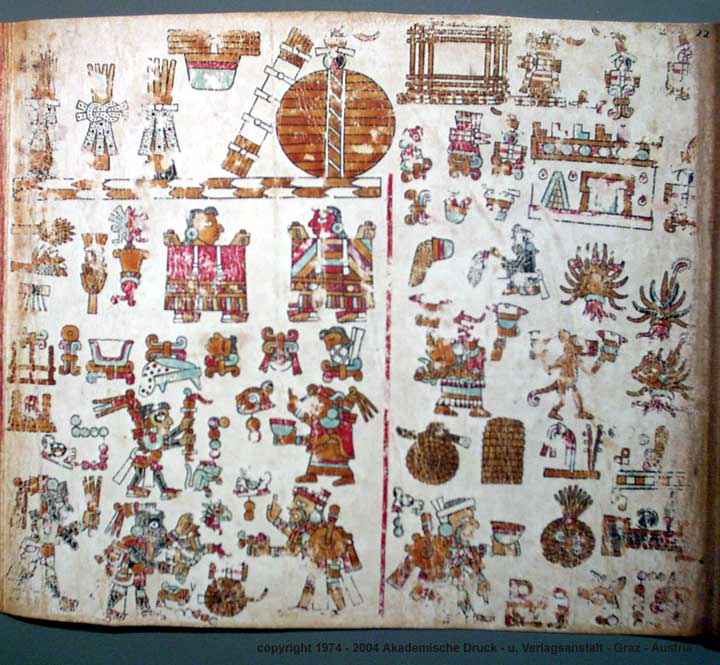 22
copyright 1974 - 2004 Akademische Druck - u. Verlagsanstalt - Graz - Austria